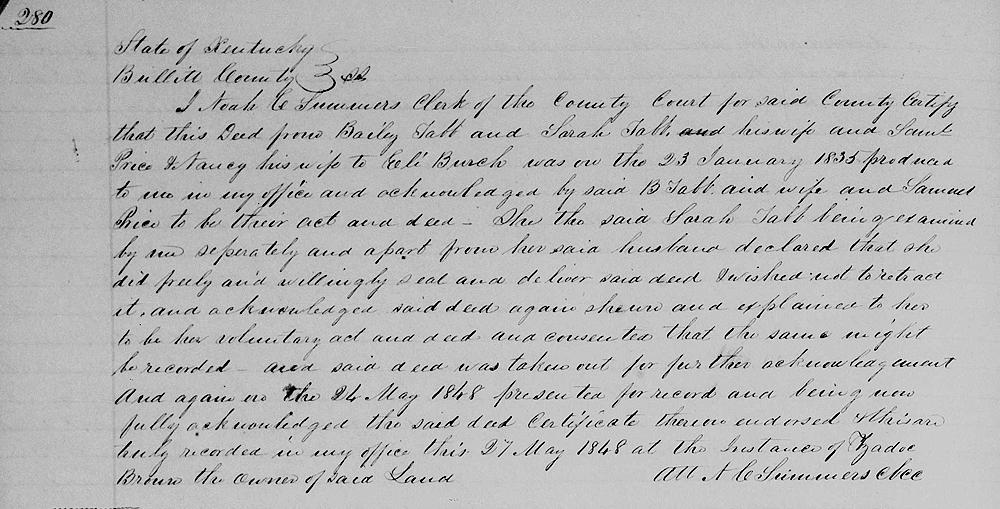 280
State of Kentucky
Bullitt County } Sct
I Noah C Summers Clerk of the County Court for said County Certify
that this Deed from Baily Tabb and Sarah Tabb and his wife and Saml
Price & Nancy his wife to Eli Burch was on the 23 January 1835 produced
to me in my office and acknowledged by said B Tabb and wife and Samuel
Price to be their act and deed - She the said Sarah Tabb being examined
by me seperately and apart from her said husband declared that she
did freely and willingly seal and deliver said deed & wished not to retract
it, and acknowledged said deed again shewn and explained to her
to be her voluntary act and deed and consented that the same might
be recorded - and said deed was taken out for further acknowledgement
And again on the 24 May 1848 presented for record and being now
fully acknowledged the said deed Certificate thereon endorsed & this are
truly recorded in my office this 27 May 1848 at the Instance of Zadoc
Brown the owner of said Land Att N C Summers cbcc